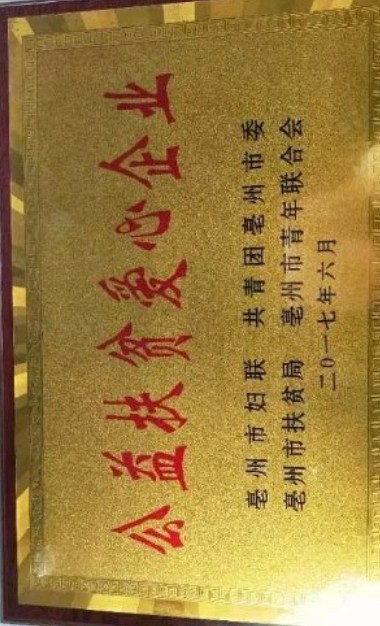 公益扶贫爱心企业
亳州市妇联 共青团亳州市委
亳州市扶贫局 亳州市青年联合会
二0一七年六月